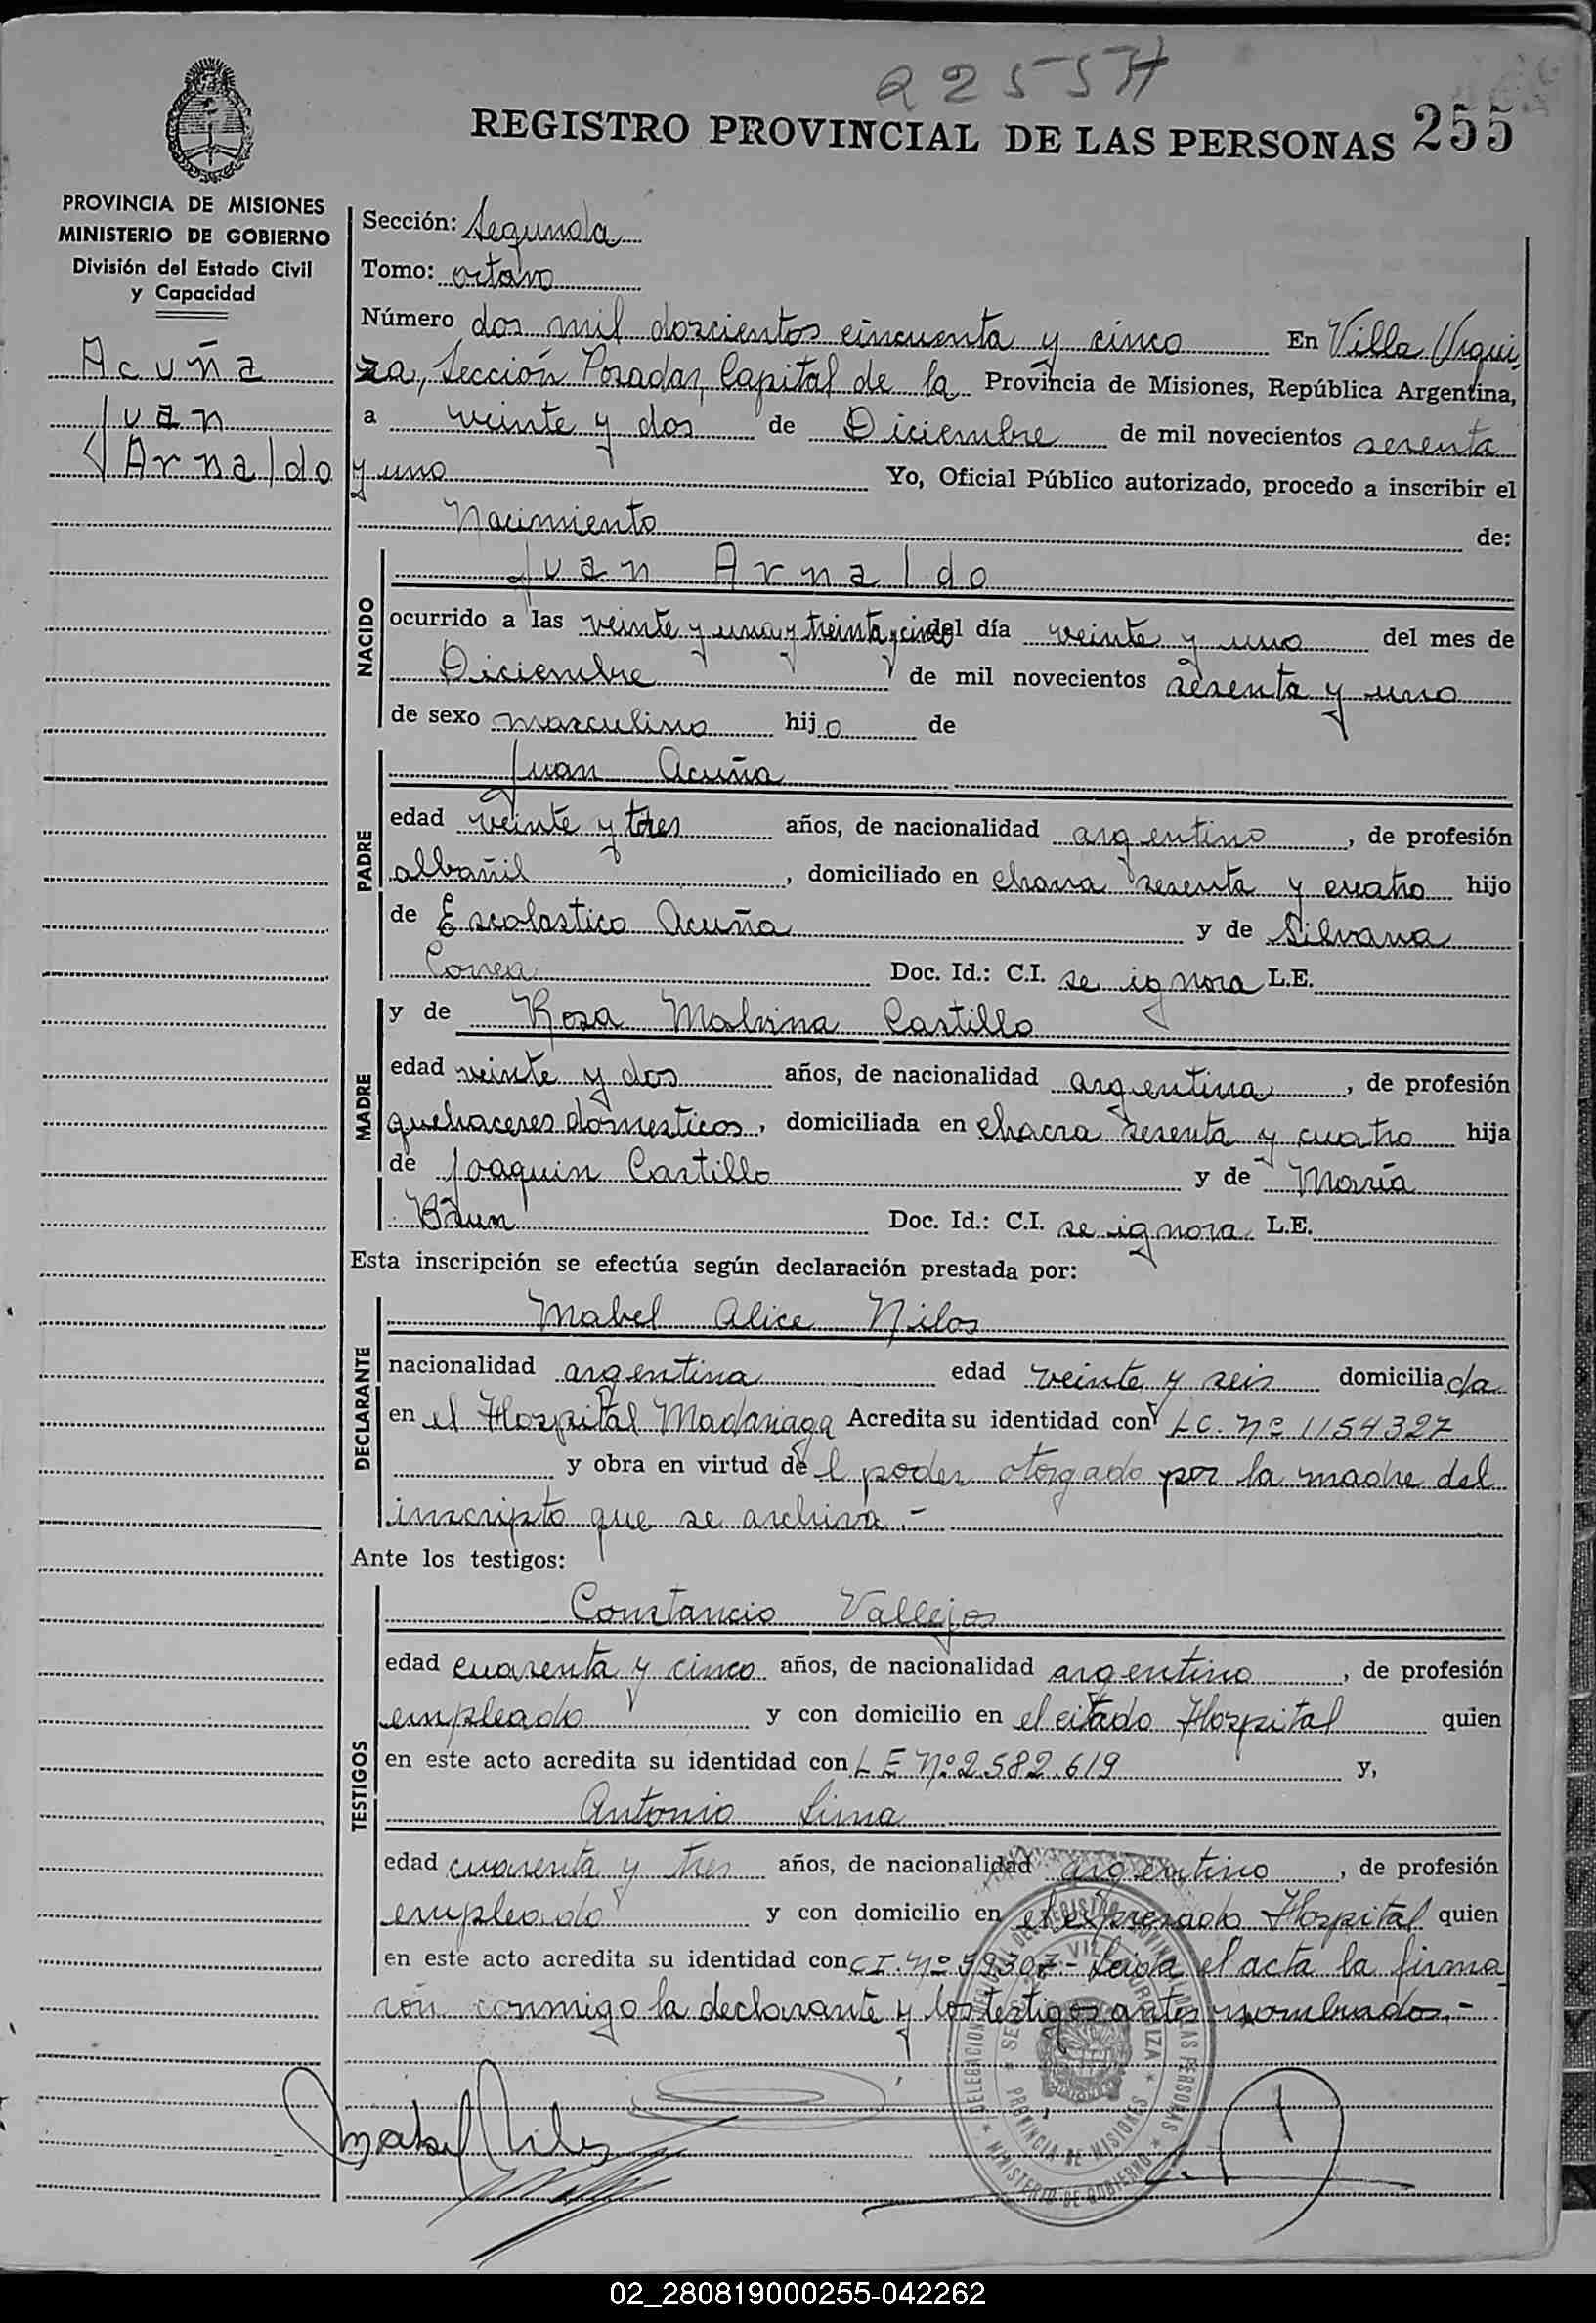 2255H
REGISTRO PROVINCIAL DE LAS PERSONAS 255
PROVINCIA DE MISIONES
MINISTERIO DE GOBIERNO
División del Estado Civil
y Capacidad
Acuña
Juan
Arnaldo
Sección: Segunda
Tomo: octavo
Número dos mil doscientos cincuenta y cinco En Villa Urqui
za, Sección Posadas, Capital de la Provincia de Misiones, República Argentina,
a veinte y dos de Diciembre de mil novecientos sesenta
y uno Yo, Oficial Público autorizado, procedo a inscribir el
Nacimiento de:
NACIDO
Juan Arnaldo
ocurrido a las veinte y una y treinta y cinco del día veinte y uno del mes de
Diciembre de mil novecientos sesenta y uno
de sexo masculino hijo de
PADRE
Juan Acuña
edad veinte y tres años, de nacionalidad argentino, de profesión
albañil, domiciliado en chacra sesenta y cuatro hijo
de Escolastico Acuña y de Silvana
Correa Doc. Id.: C.I. se ignora L.E.
MADRE
y de Rosa Malvina Castillo
edad veinte y dos años, de nacionalidad argentina, de profesión
quehaceres domesticos, domiciliada en chacra sesenta y cuatro hija
de Joaquin Castillo y de María
Braun Doc. Id.: C.I. se ignora L.E.
Esta inscripción se efectúa según declaración prestada por:
DECLARANTE
Mabel Alice Nilos
nacionalidad argentina edad veinte y seis domiciliada
en el Hospital Madariaga Acredita su identidad con LC. Nº 1154327
y obra en virtud del poder otorgado por la madre del
inscripto que se archiva.-
Ante los testigos:
TESTIGOS
Constancio Vallejos
edad cuarenta y cinco años, de nacionalidad argentino, de profesión
empleado y con domicilio en el citado Hospital quien
en este acto acredita su identidad con LE Nº 2.582.619 y,
Antonio Lima
edad cuarenta y tres años, de nacionalidad argentino, de profesión
empleado y con domicilio en el expresado Hospital quien
en este acto acredita su identidad con CI. Nº 59307.- Leida el acta la firma
ron conmigo la declarante y los testigos antes nombrados.-
DELEGACION DEL REGISTRO PROVINCIAL DE LAS PERSONAS
MINISTERIO DE GOBIERNO
VILLA URQUIZA
PROVINCIA DE MISIONES
Mabel Nilos
02_280819000255-042262